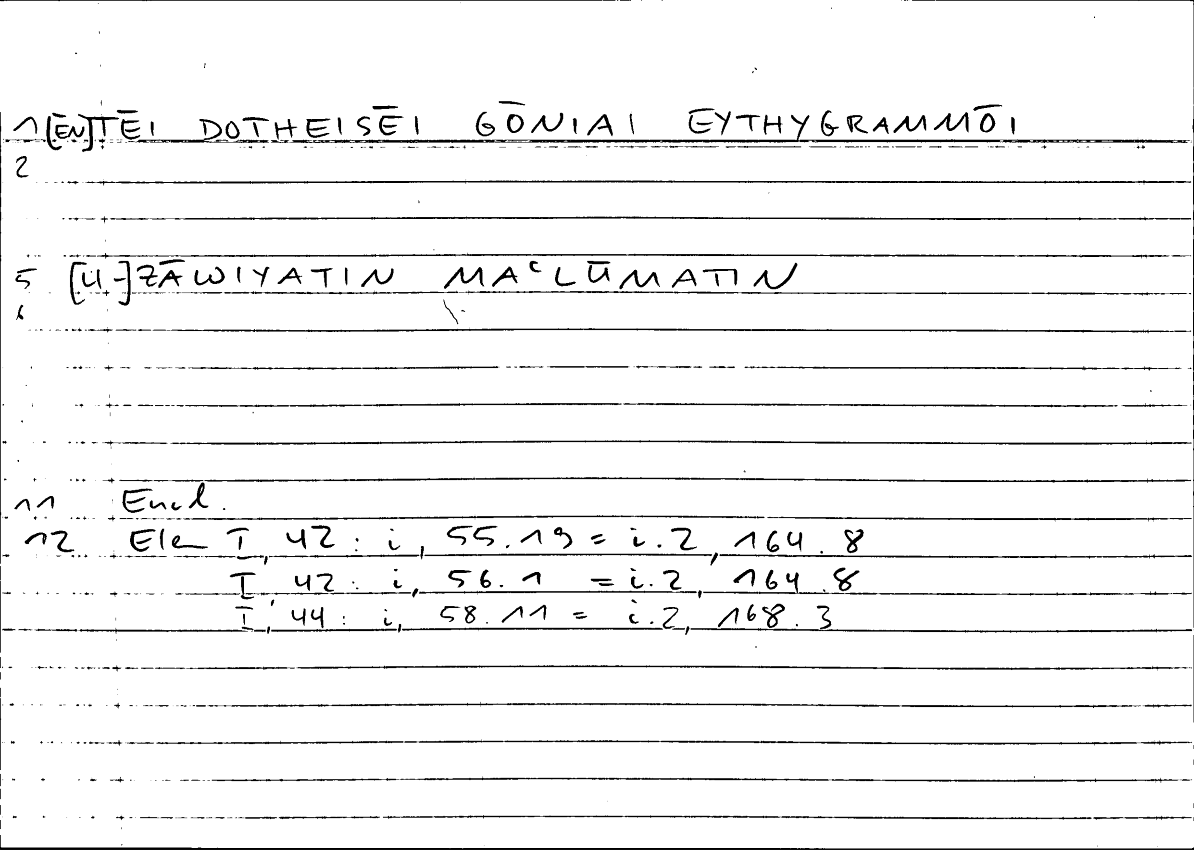 1 [ĒN] TĒI DOTHEISĒI GŌNIAI EYTHYGRAMMŌI
2
5 [LI-] ZĀWIYATIN MAʿLŪMATIN
6
11 Eucl.
12 Elem I, 42 : i, 55.19 = i.2, 164.8
I, 42 : i, 56.1 = i.2, 164.8
I, 44 : i, 58.11 = i.2, 168.3